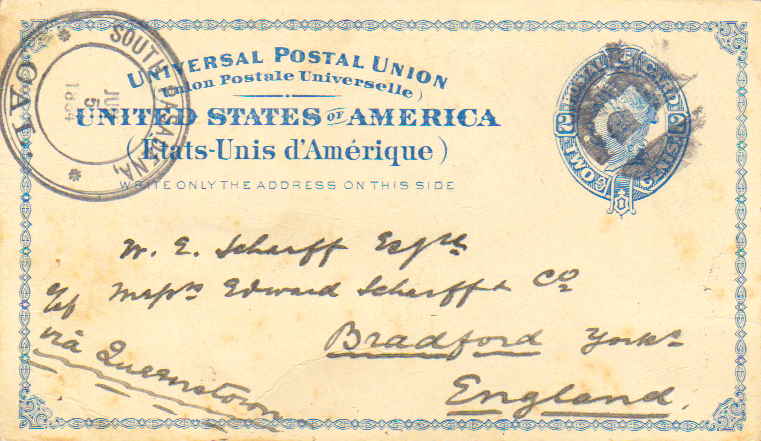 SOUTH PASADENA,
CAL.
JUL
5
1894
UNIVERSAL POSTAL UNION
(Union Postale Universelle)
UNITED STATES OF AMERICA
(États-Unis d'Amérique)
WRITE ONLY THE ADDRESS ON THIS SIDE
POSTAL CARD
2 2
TWO CENTS
W. E. Scharff Esqre
c/of Messrs Edward Scharff & Co
Bradford Yorks
England.
via Queenstown